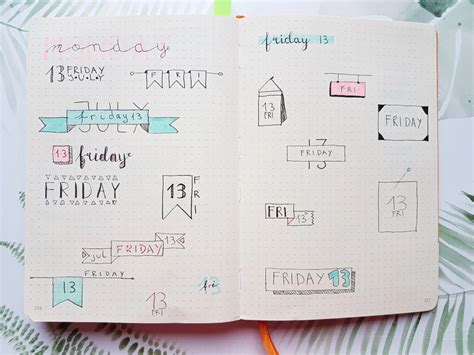 monday
13 FRIDAY
JULY
FRI
JULY
friday 13
13 friday
FRIDAY
13
FRI
FRIDAY
jul
13
FRIDAY
13
13
FRI
fri
13
friday 13
13
FRI
FRI
FRIDAY
13
FRIDAY
13
FRI
FRI
13
FRIDAY 13